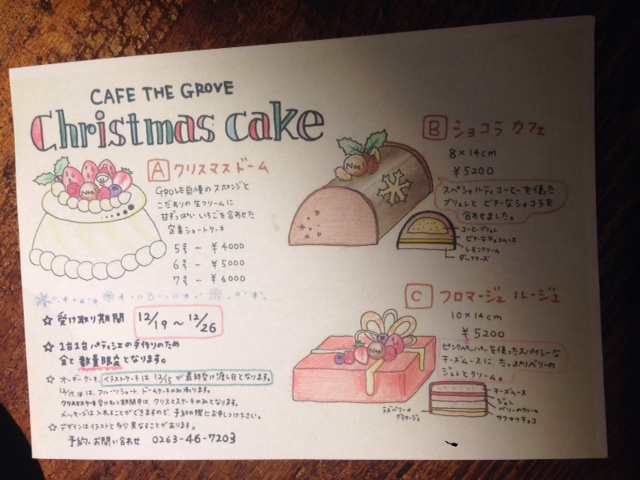 CAFE THE GROVE
Christmas cake
A クリスマスドーム
GROVE自慢のスポンジと
こだわりの生クリームに
甘ずっぱいいちごを合わせた
定番ショートケーキ
5号 - ¥4000
6号 - ¥5000
7号 - ¥6000
Noel
B ショコラ カフェ
8×14cm
¥5200
スペシャルティコーヒーを使った
ブリュレと ビターなショコラを
合わせました。
コーヒーブリュレ
ビターチョコムース
レモンクリーム
ダックワーズ
C フロマージュ ルージュ
10×14cm
¥5200
ピンクペッパーを使ったスパイシーな
チーズムースに、たっぷりベリーの
ジュレとクリーム。
チーズムース
ジュレ
ベリーのクリーム
サクサクチョコ
ラズベリーの
グラサージュ
☆ 受け取り期間 12/19 〜 12/26
☆ 1台1台パティシエの手作りのため
全て数量限定となります。
☆ オーダーケーキ、イラストケーキは 12/15が最終受け渡し日となります。
クリスマスケーキ受け取り期間中は、クリスマスケーキのみとなります。
メッセージは入れることができますので、予約の際にお申しつけ下さい。
☆ デザインはイラストと多少異なることがあります。
予約、お問い合わせ 0263-46-7203